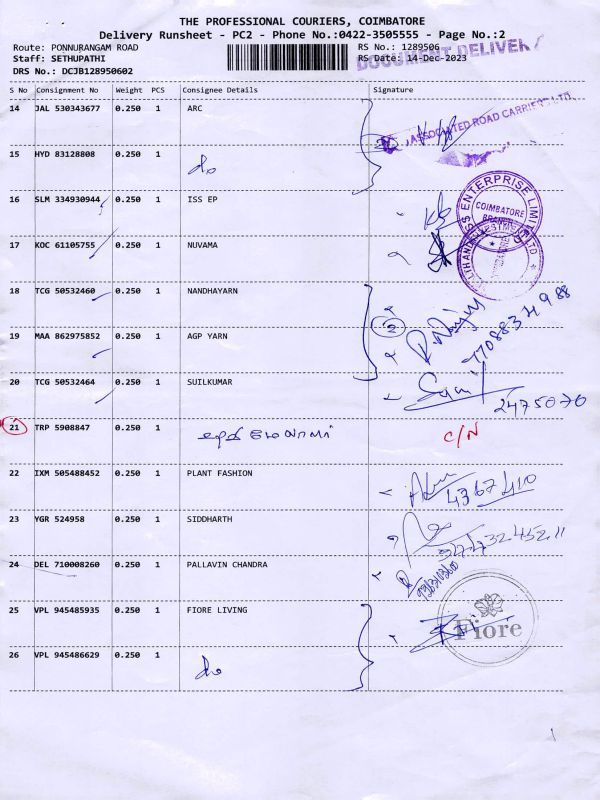 THE PROFESSIONAL COURIERS, COIMBATORE
Delivery Runsheet - PC2 - Phone No.:0422-3505555 - Page No.:2
Route: PONNURANGAM ROAD
Staff: SETHUPATHI
DRS No.: DCJB128950602
RS No.: 1289506
RS Date: 14-Dec-2023
DOCUMENT DELIVERY
S No Consignment No Weight PCS Consignee Details Signature
14 JAL 530343677 0.250 1 ARC
ASSOCIATED ROAD CARRIERS LTD
15 HYD 83128808 0.250 1 do
16 SLM 334930944 0.250 1 ISS EP
ISS ENTERPRISE LIMITED
COIMBATORE
BRANCH
17 KOC 61105755 0.250 1 NUVAMA
18 TCG 50532460 0.250 1 NANDHAYARN
2
19 MAA 862975852 0.250 1 AGP YARN
20 TCG 50532464 0.250 1 SUILKUMAR
2475070
21 TRP 5908847 0.250 1 C/N
22 IXM 505488452 0.250 1 PLANT FASHION
4367410
23 YGR 524958 0.250 1 SIDDHARTH
24 DEL 710008260 0.250 1 PALLAVIN CHANDRA
25 VPL 945485935 0.250 1 FIORE LIVING
Fiore
26 VPL 945486629 0.250 1 do